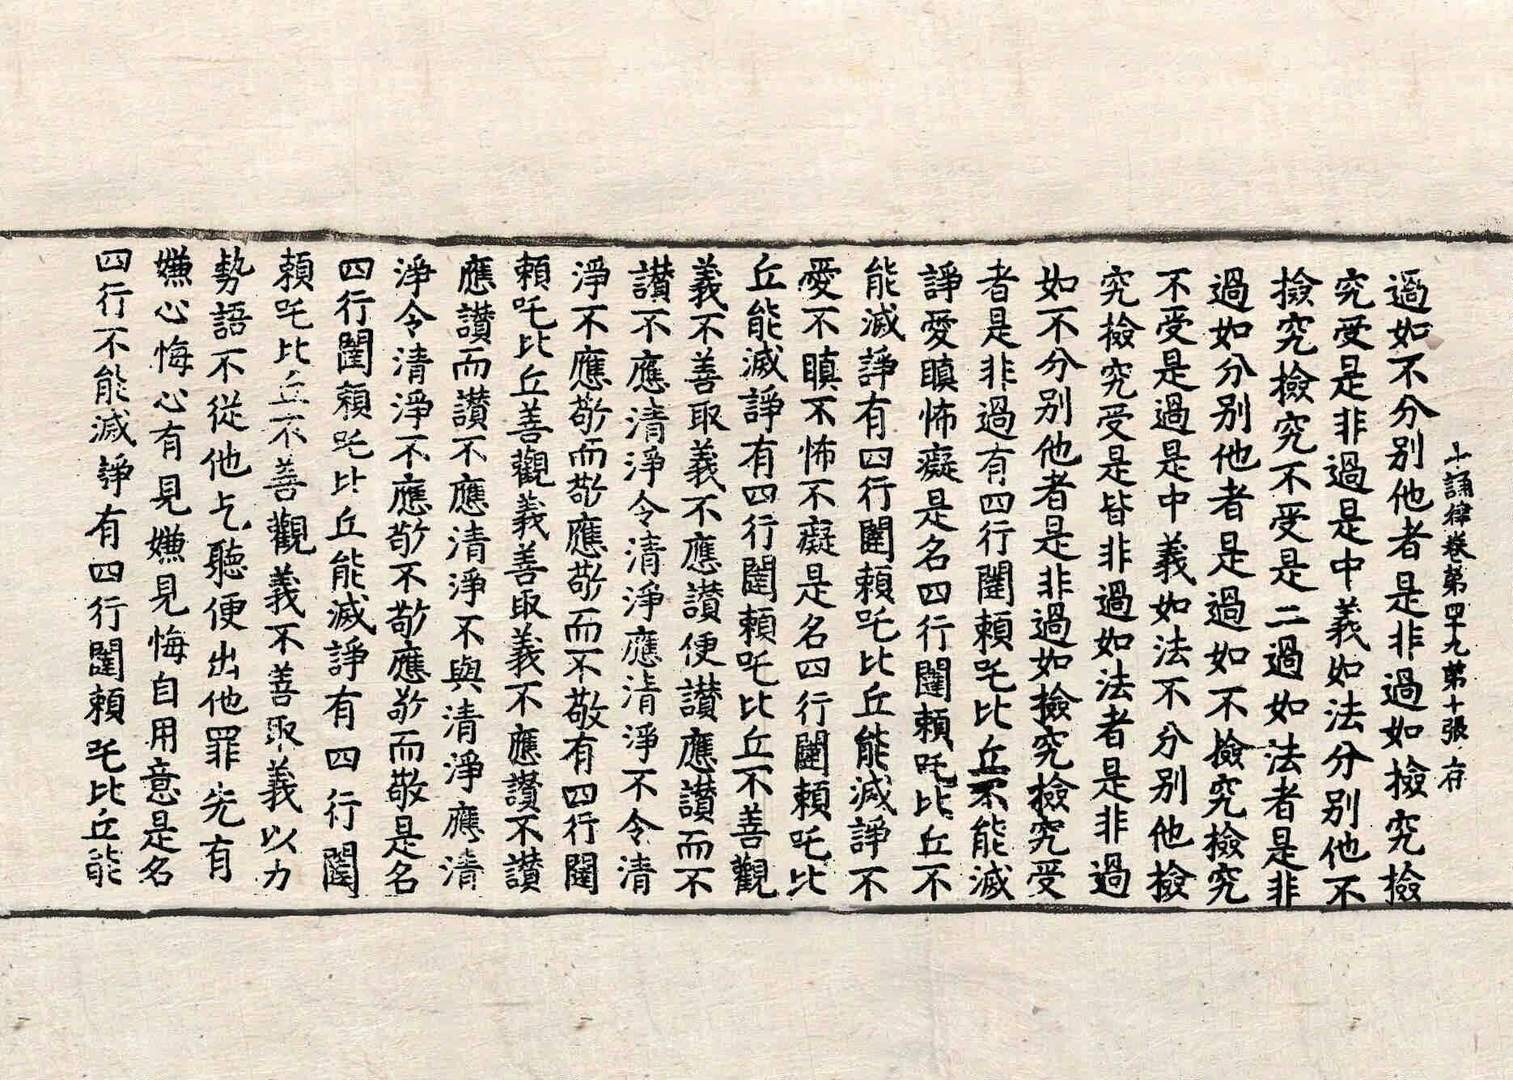 十誦律卷第四十九第十張存
過如不分別他者是非過如檢究檢
究受是非過是中義如法分別他不
撿究檢究不受是二過如法者是非
過如分別他者是過如不撿究檢究
不受是過是中義如法不分別他撿
究檢究受是皆非過如法者是非過
如不分別他者是非過如撿究檢究受
者是非過有四行闥頼吒比丘不能滅
諍愛瞋怖癡是名四行闥頼吒比丘不
能滅諍有四行闥頼吒比丘能滅諍不
愛不瞋不怖不癡是名四行闥頼吒比
丘能滅諍有四行闥頼吒比丘不善觀
義不善取義不應讃便讃應讃而不
讃不應清淨令清淨應清淨不令清
淨不應敬而敬應敬而不敬有四行闥
頼吒比丘善觀義善取義不應讃不讃
應讃而讃不應清淨不與清淨應清
淨令清淨不應敬不敬應敬而敬是名
四行闥頼吒比丘能滅諍有四行闥
頼吒比丘不善觀義不善取義以力
勢語不從他乞聽便出他罪先有
嫌心悔心有見嫌見悔自用意是名
四行不能滅諍有四行闥頼吒比丘能